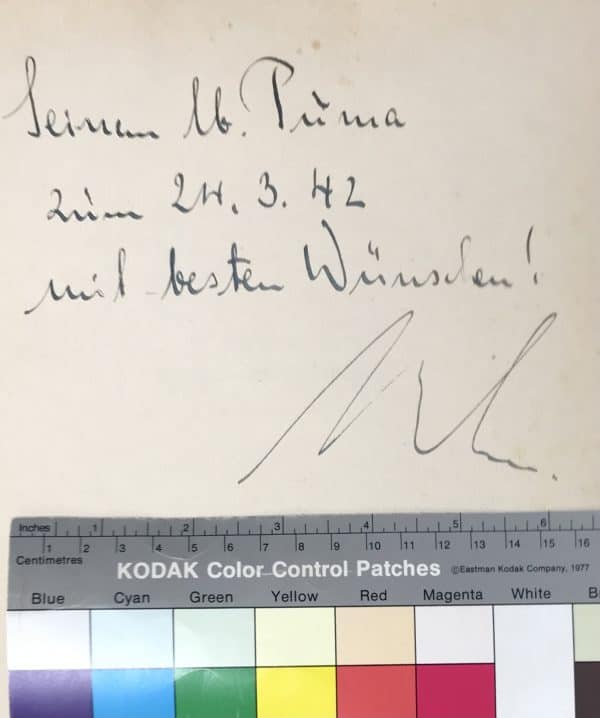 Seinem lb. Püma
zum 24. 3. 42
mit besten Wünschen!
Inches 1 2 3 4 5 6
Centimetres 1 2 3 4 5 6 7 8 9 10 11 12 13 14 15 16
KODAK Color Control Patches ©Eastman Kodak Company, 1977
Blue Cyan Green Yellow Red Magenta White